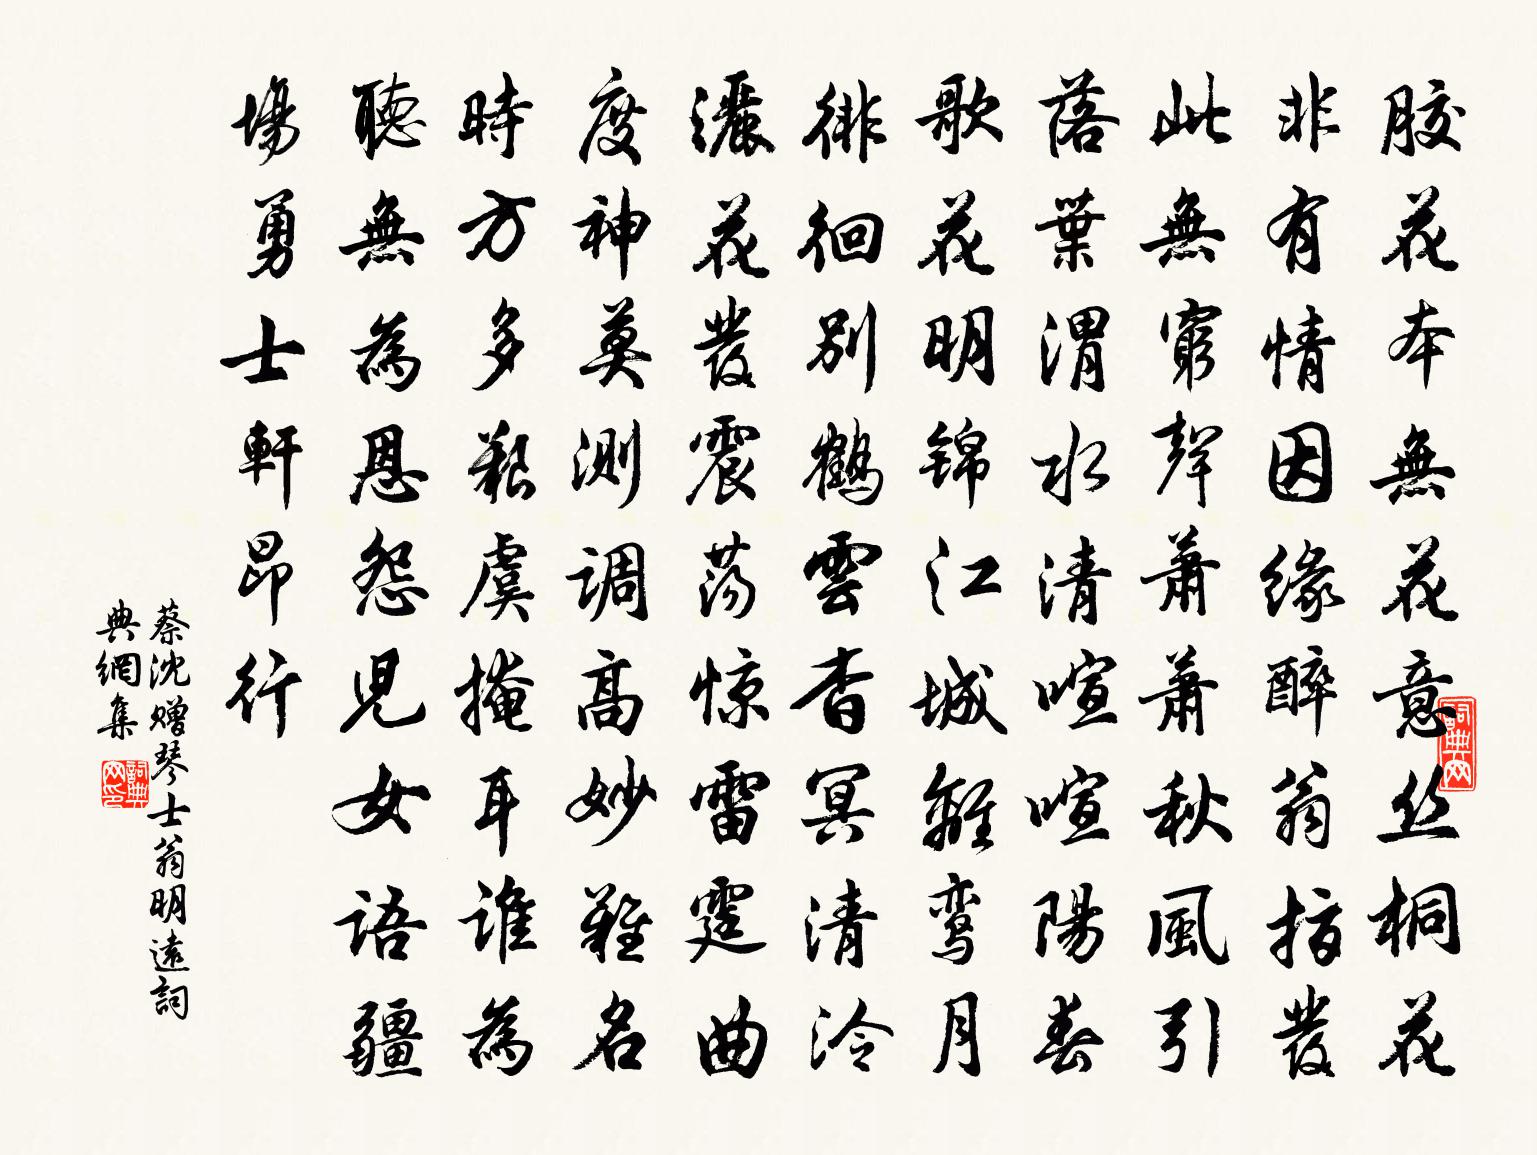 胶花本無花意丝桐花
非有情因缘醉翁指發
此無窮聲蕭蕭秋風引
落葉渭水清喧喧陽春
歌花明锦江城離鸾月
徘徊別鶴雲杳冥清泠
灑花發震荡惊雷霆曲
度神莫測调高妙難名
時方多艱虞掩耳谁為
聽無為恩怨児女语疆
場勇士軒昂行
蔡沈赠琴士翁明遠詞
典網集
詞典网